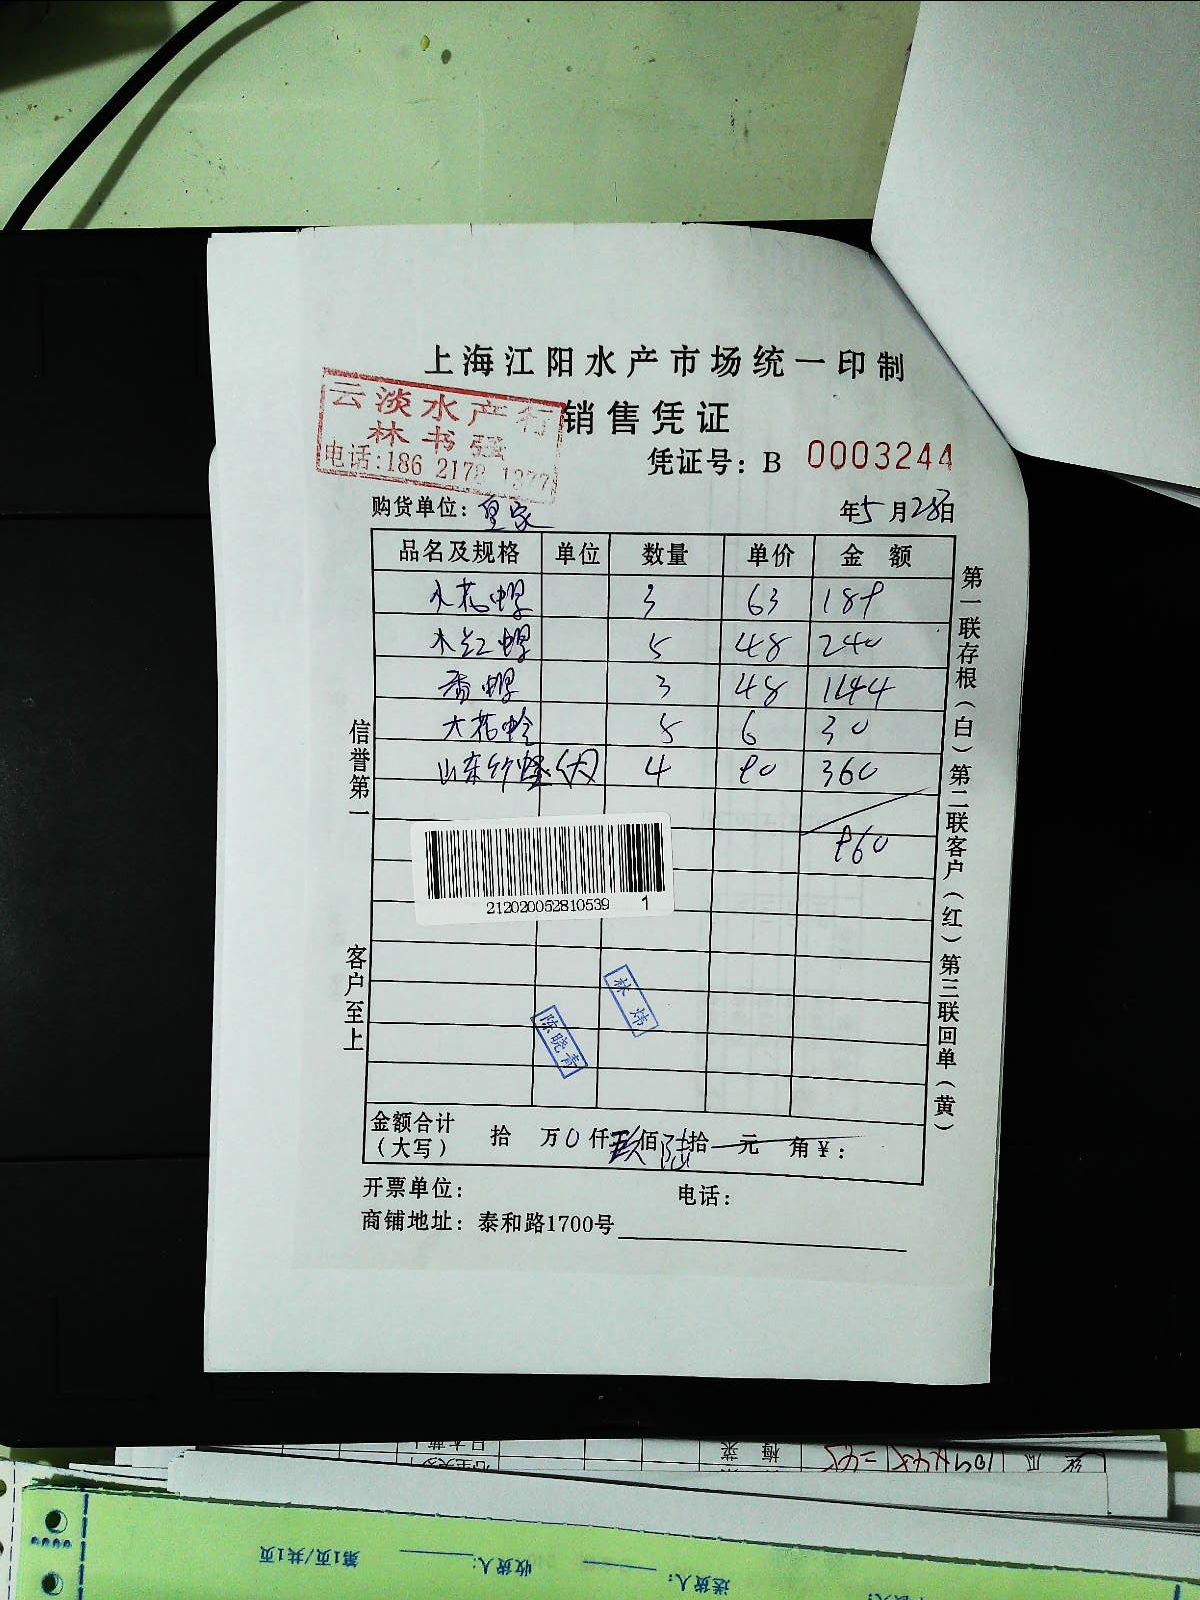 上海江阳水产市场统一印制
云淡水产行
林书强
电话:186 2178 1377
销售凭证
凭证号：B 0003244
购货单位：皇家 年5月28日
品名及规格 单位 数量 单价 金额
水花蜆 3 63 189
木红蜆 5 48 240
香蜆 3 48 144
大花蛤 5 6 30
山东竹蛏(大) 4 90 360
960
212020052810539 1
林炜
陈晓青
金额合计（大写） 拾 万0仟玖佰陆拾元 角￥：
开票单位： 电话：
商铺地址：泰和路1700号
信誉第一
客户至上
第一联存根（白）第二联客户（红）第三联回单（黄）
第1页/共1页
收货人：
送货人：